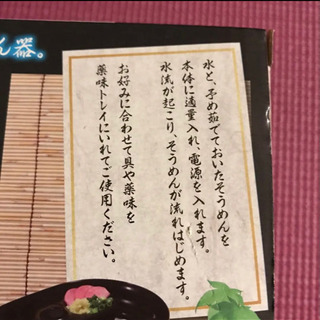 ん器。
水と、予め茹でておいたそうめんを
本体に適量入れ、電源を入れます。
水流が起こり、そうめんが流れはじめます。
お好みに合わせて具や薬味を
薬味トレイにいれてご使用ください。